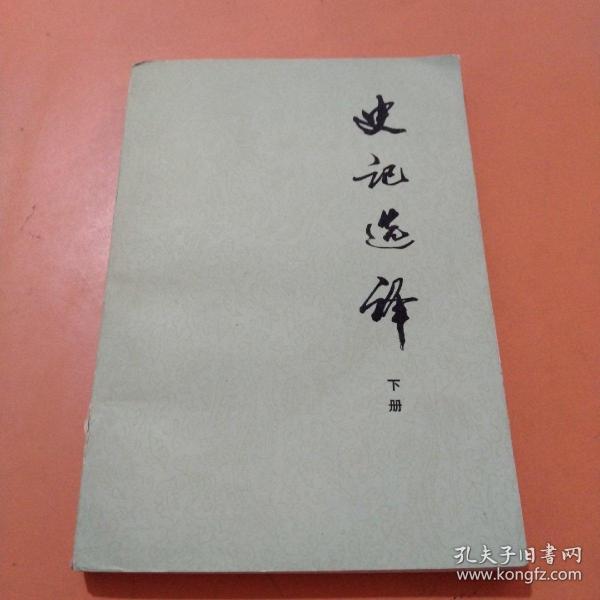 史记选译
下册
孔夫子旧書网
www.kongfz.com